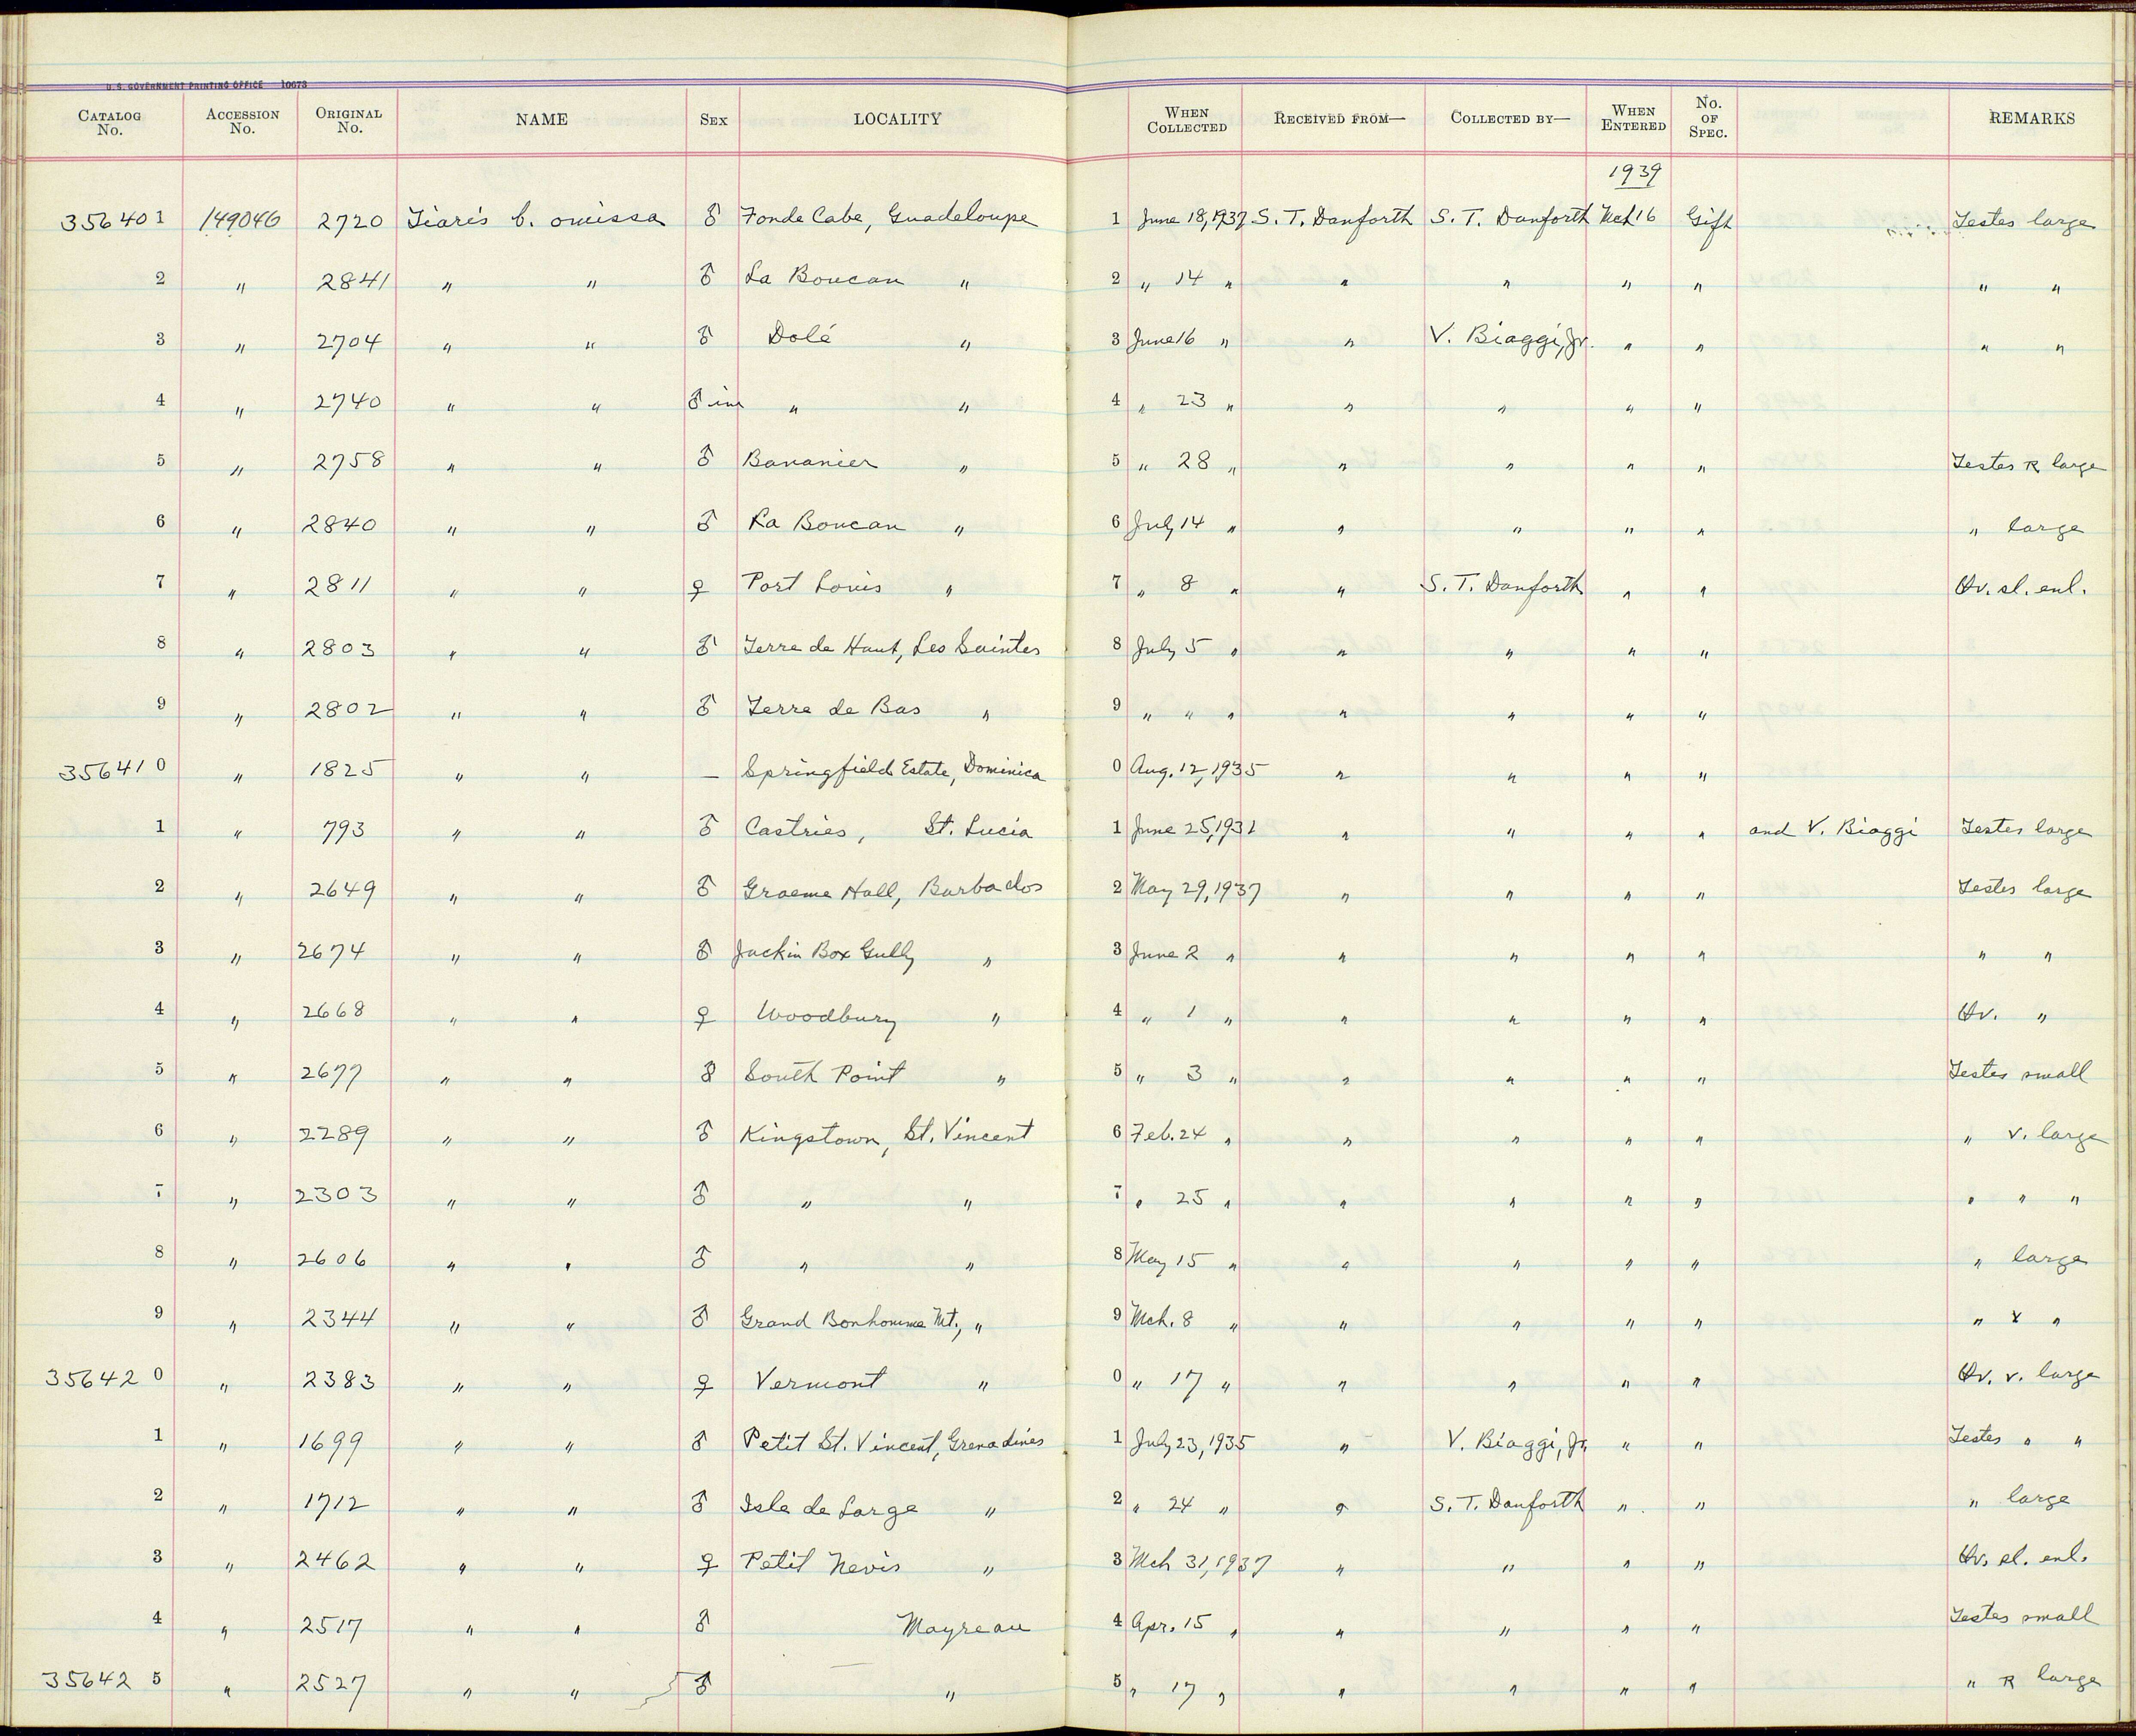 U.S. GOVERNMENT PRINTING OFFICE 10673
CATALOG No. ACCESSION No. ORIGINAL No. NAME SEX LOCALITY WHEN COLLECTED RECEIVED FROM— COLLECTED BY— WHEN ENTERED No. OF SPEC. REMARKS
1939
356401 149046 2720 Tiaris b. omissa ♂ Fonde Cabe, Guadeloupe 1 June 18, 1937 S. T. Danforth S. T. Danforth Mch 16 Gift Testes large
2 " 2841 " " ♂ La Boucan " 2 " 14 " " " " " " "
3 " 2704 " " ♂ Dolé " 3 June 16 " " V. Biaggi, Jr. " " " "
4 " 2740 " " ♂ im " " 4 " 23 " " " " "
5 " 2758 " " ♂ Bananier " 5 " 28 " " " " " Testes R large
6 " 2840 " " ♂ La Boucan " 6 July 14 " " " " " " large
7 " 2811 " " ♀ Port Louis " 7 " 8 " " S. T. Danforth " " Ov. sl. enl.
8 " 2803 " " ♂ Terre de Haut, Les Saintes 8 July 5 " " " " "
9 " 2802 " " ♂ Terre de Bas " 9 " " " " " " "
356410 " 1825 " " — Springfield Estate, Dominica 0 Aug. 12, 1935 " " " "
1 " 793 " " ♂ Castries, St. Lucia 1 June 25, 1931 " " " " and V. Biaggi Testes large
2 " 2649 " " ♂ Graeme Hall, Barbados 2 May 29, 1937 " " " " Testes large
3 " 2674 " " ♂ Jack in Box Gully " 3 June 2 " " " " " " "
4 " 2668 " " ♀ Woodbury " 4 " 1 " " " " " Ov. "
5 " 2677 " " ♂ South Point " 5 " 3 " " " " " Testes small
6 " 2289 " " ♂ Kingstown, St. Vincent 6 Feb. 24 " " " " " " v. large
7 " 2303 " " ♂ " " 7 " 25 " " " " " " " "
8 " 2606 " " ♂ " " 8 May 15 " " " " " " large
9 " 2344 " " ♂ Grand Bonhomme Mt., " 9 Mch. 8 " " " " " " v "
356420 " 2383 " " ♀ Vermont " 0 " 17 " " " " " Ov. v. large
1 " 1699 " " ♂ Petit St. Vincent, Grenadines 1 July 23, 1935 " V. Biaggi, Jr. " " Testes " "
2 " 1712 " " ♂ Isle de Large " 2 " 24 " " S. T. Danforth " " " large
3 " 2462 " " ♀ Petit Nevis " 3 Mch 31, 1937 " " " " Ov. sl. enl.
4 " 2517 " " ♂ Mayreau 4 Apr. 15 " " " " " Testes small
356425 " 2527 " " ♂ " 5 " 17 " " " " " " R large